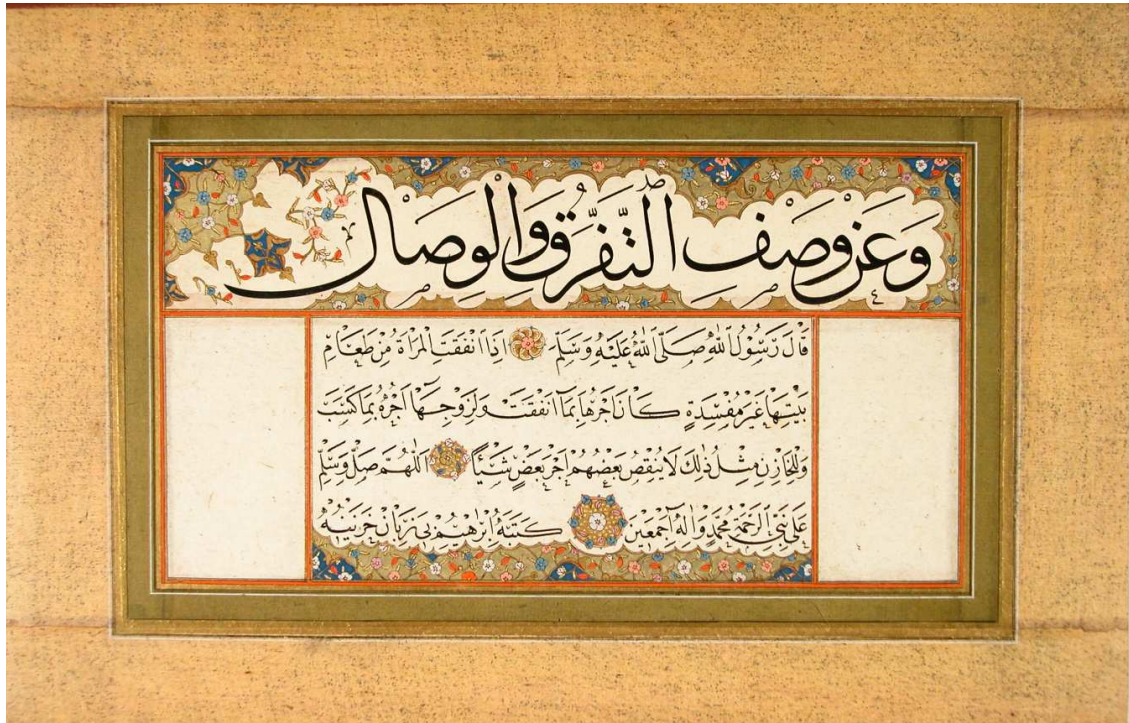 وَعَنْ وَصْفِ التَّفَرُّقِ وَالْوِصَالِ
قَالَ رَسُولُ اللّٰهِ صَلَّى اللّٰهُ عَلَيْهِ وَسَلَّمَ اِذَا اَنْفَقَتِ الْمَرْاَةُ مِنْ طَعَامِ
بَيْتِهَا غَيْرَ مُفْسِدَةٍ كَانَ اَجْرُهَا بِمَا اَنْفَقَتْ وَلِزَوْجِهَا اَجْرُهُ بِمَا كَسَبَ
وَلِلْخَازِنِ مِثْلُ ذٰلِكَ لَا يَنْقُصُ بَعْضُهُمْ اَجْرَ بَعْضٍ شَيْئًا اَللّٰهُمَّ صَلِّ وَسَلِّمْ
عَلٰى نَبِيِّ الرَّحْمَةِ مُحَمَّدٍ وَاٰلِهِ اَجْمَعِينَ كَتَبَهُ اِبْرٰهِيمُ بى زبان خزينه